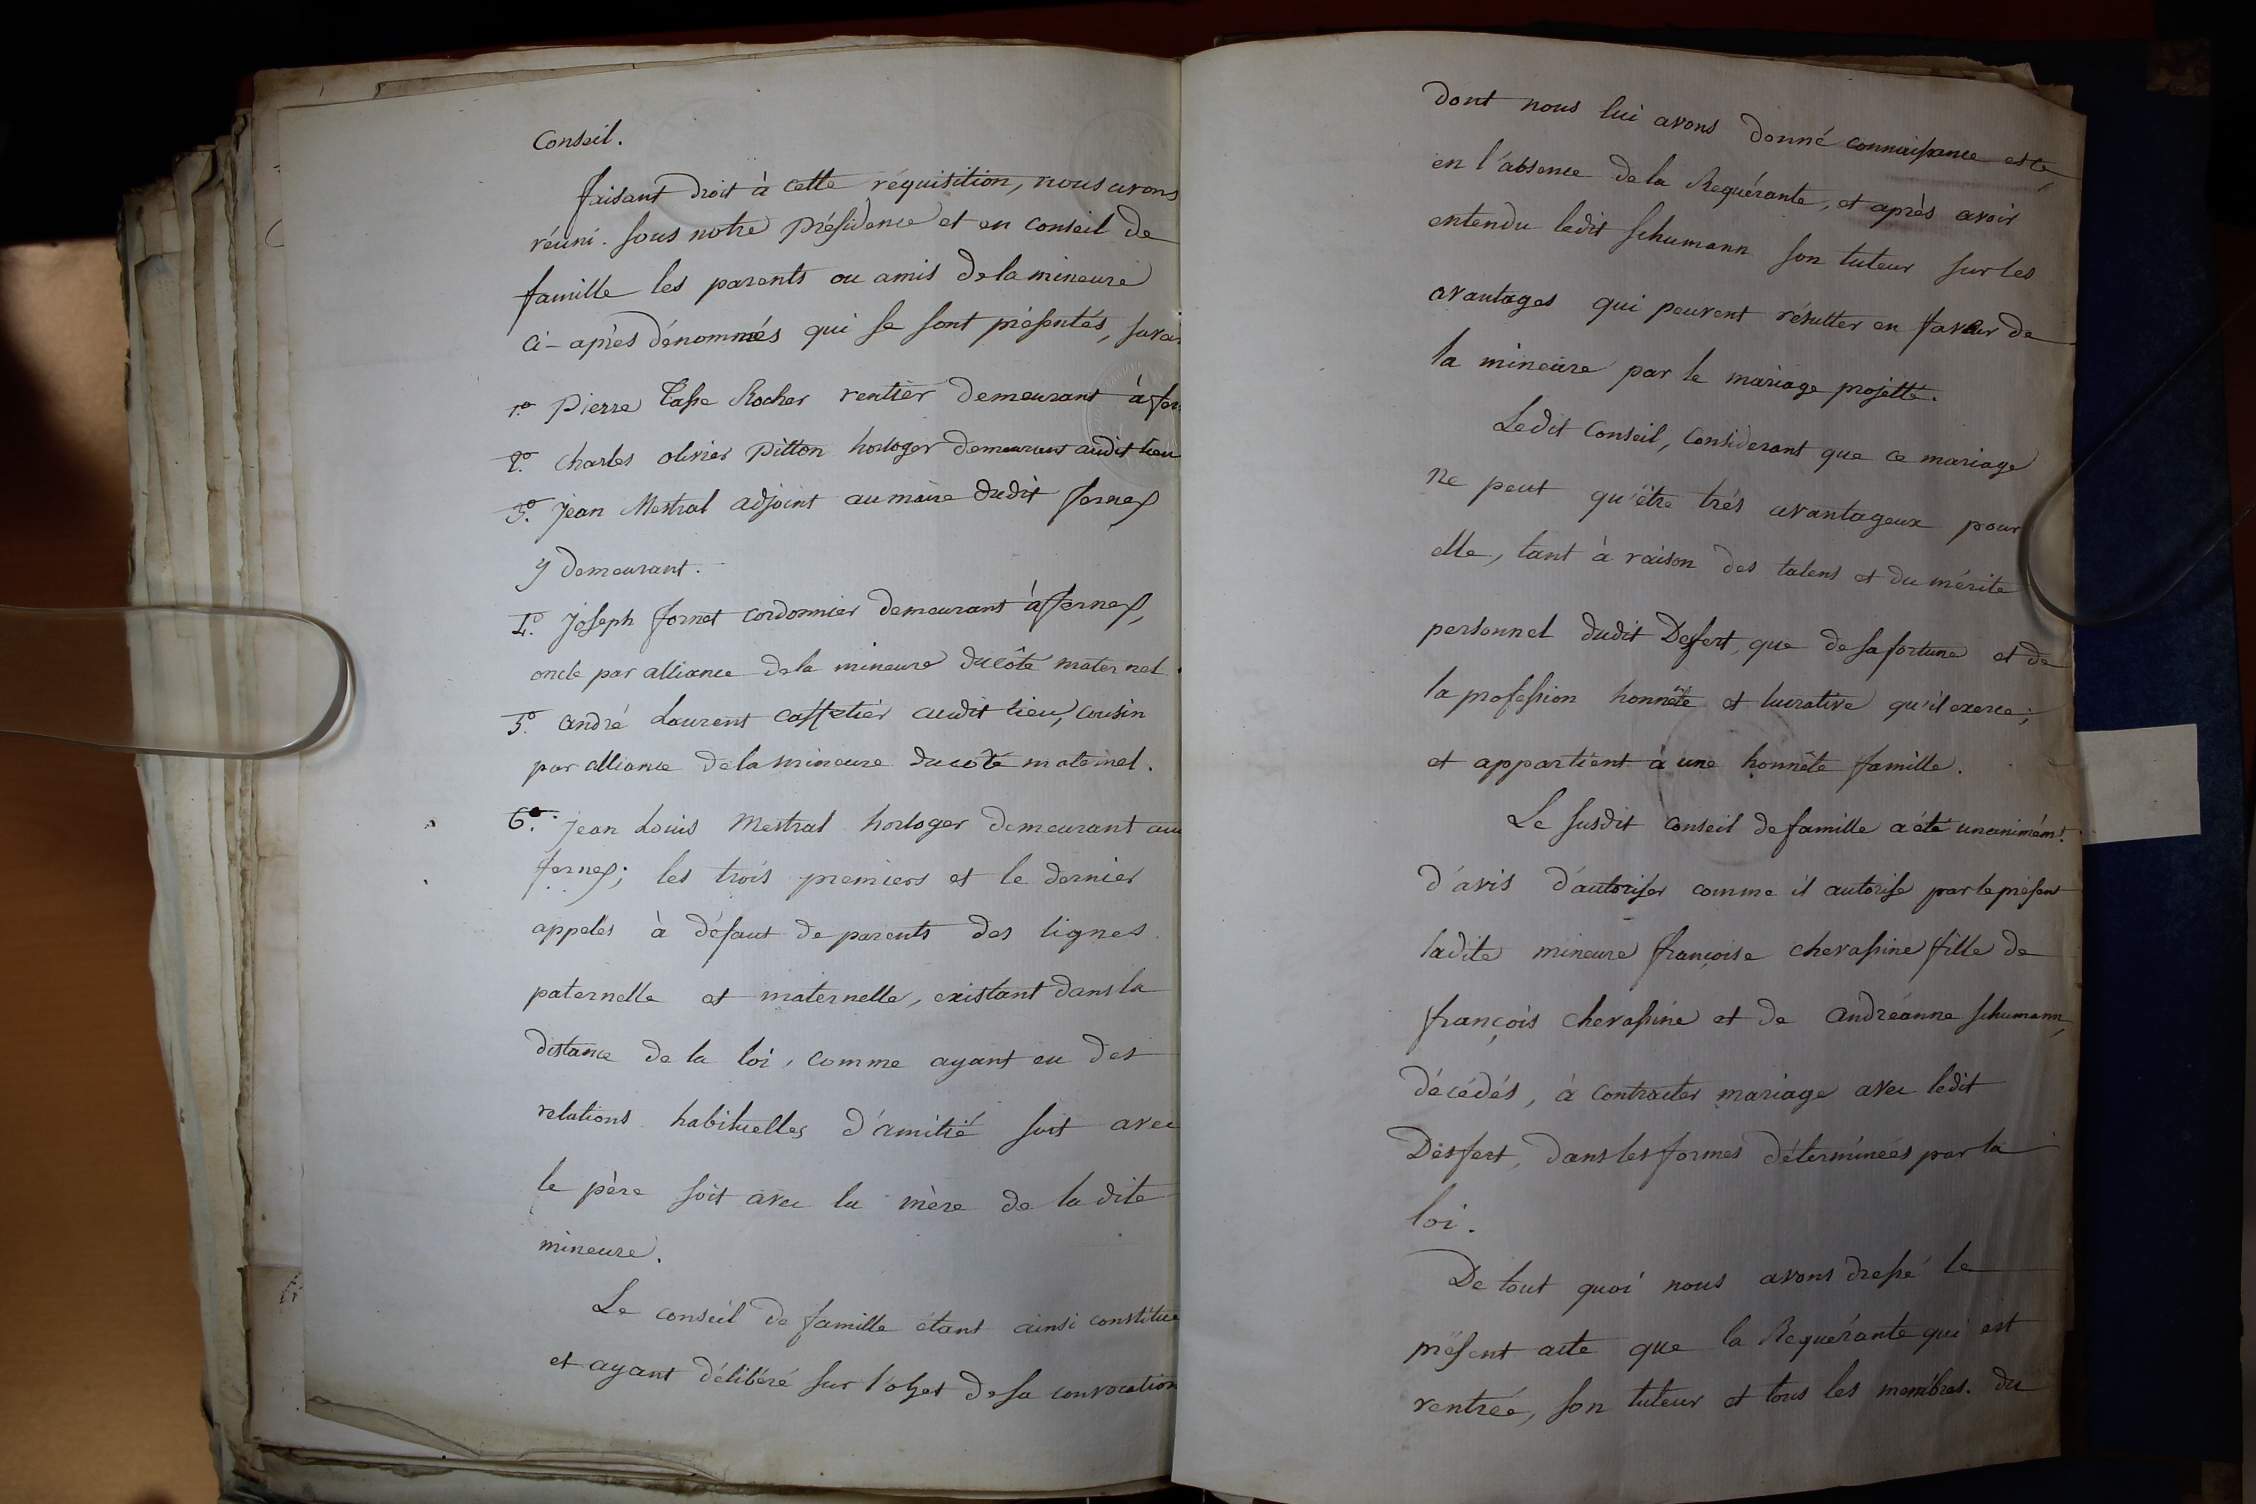 Conseil.
faisant droit à cette réquisition, nous avons
réuni sous notre présidence et en conseil de
famille les parents ou amis de la mineure
ci-après dénommés qui se sont présentés, savoi
1.º Pierre Tasse Rocher rentier demeurant à fer
2.º Charles olivier Pitton horloger demeurant audit lieu
3.º Jean Mestral adjoint au maire dudit fernex
y demeurant.
4.º Joseph fornet cordonnier demeurant à ffernex,
oncle par alliance de la mineure du côté maternel.
5.º andré Laurent caffetier audit lieu, cousin
par alliance de la mineure du côté maternel.
6.º Jean Louis Mestral horloger demeurant au
fernex; les trois premiers et le dernier
appelés à défaut de parents des lignes
paternelle et maternelle, existant dans la
distance de la loi, comme ayant eu des
relations habituelles d'amitié soit avec
le père soit avec la mère de la dite
mineure.
Le conseil de famille étant ainsi constitué
et ayant délibéré sur l'objet de sa convocation
dont nous lui avons donné connaissance
en l'absence de la Requérante, et après avoir
entendu ledit Schumann son tuteur sur les
avantages qui peuvent résulter en faveur de
la mineure par le mariage projetté.
Ledit Conseil, Considerant que ce mariage
ne peut qu'être très avantageux pour
elle, tant à raison des talens et du mérite
personnel dudit Desfert, que de sa fortune et de
la profession honnête et lucrative qu'il exerce;
et appartient à une honnête famille.
Le susdit conseil de famille a été unanimémt.
d'avis d'autoriser comme il autorise par le présent
ladite mineure françoise chevassine fille de
françois chevassine et de andréanne Schumann,
décédés, à contracter mariage avec ledit
Desfert, dans les formes déterminées par la
loi.
De tout quoi nous avons dressé le
présent acte que la Requérante qui est
rentrée, son tuteur et tous les membres du